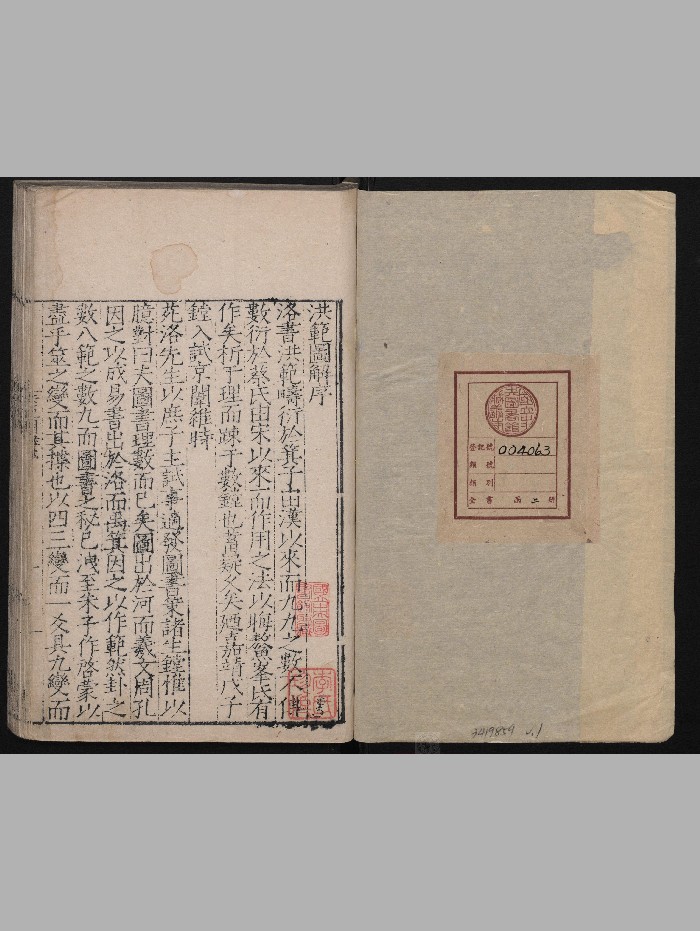 洪範圖解序
洛書洪範疇衍於箕子由漢以來而九九之數失傳
數衍於蔡氏由宋以來而作用之法以晦鰲峯氏有
作矣析于理而踈于數鐘也蓄疑久矣廼嘉靖戊子
鐘入試京闈維時
苑洛先生以庶子主試事適發圖書策諸生鐘惟以
臆對曰夫圖書理數而已矣圖出於河而羲文周孔
因之以成易書出於洛而禹箕因之以作範然卦之
數八範之數九而圖書之秘已洩至朱子作啓蒙以
盡乎筮之變而其揲也以四三變而一爻具九變而
登記號
004063
類 號
全書 函 冊
3419859 v.1